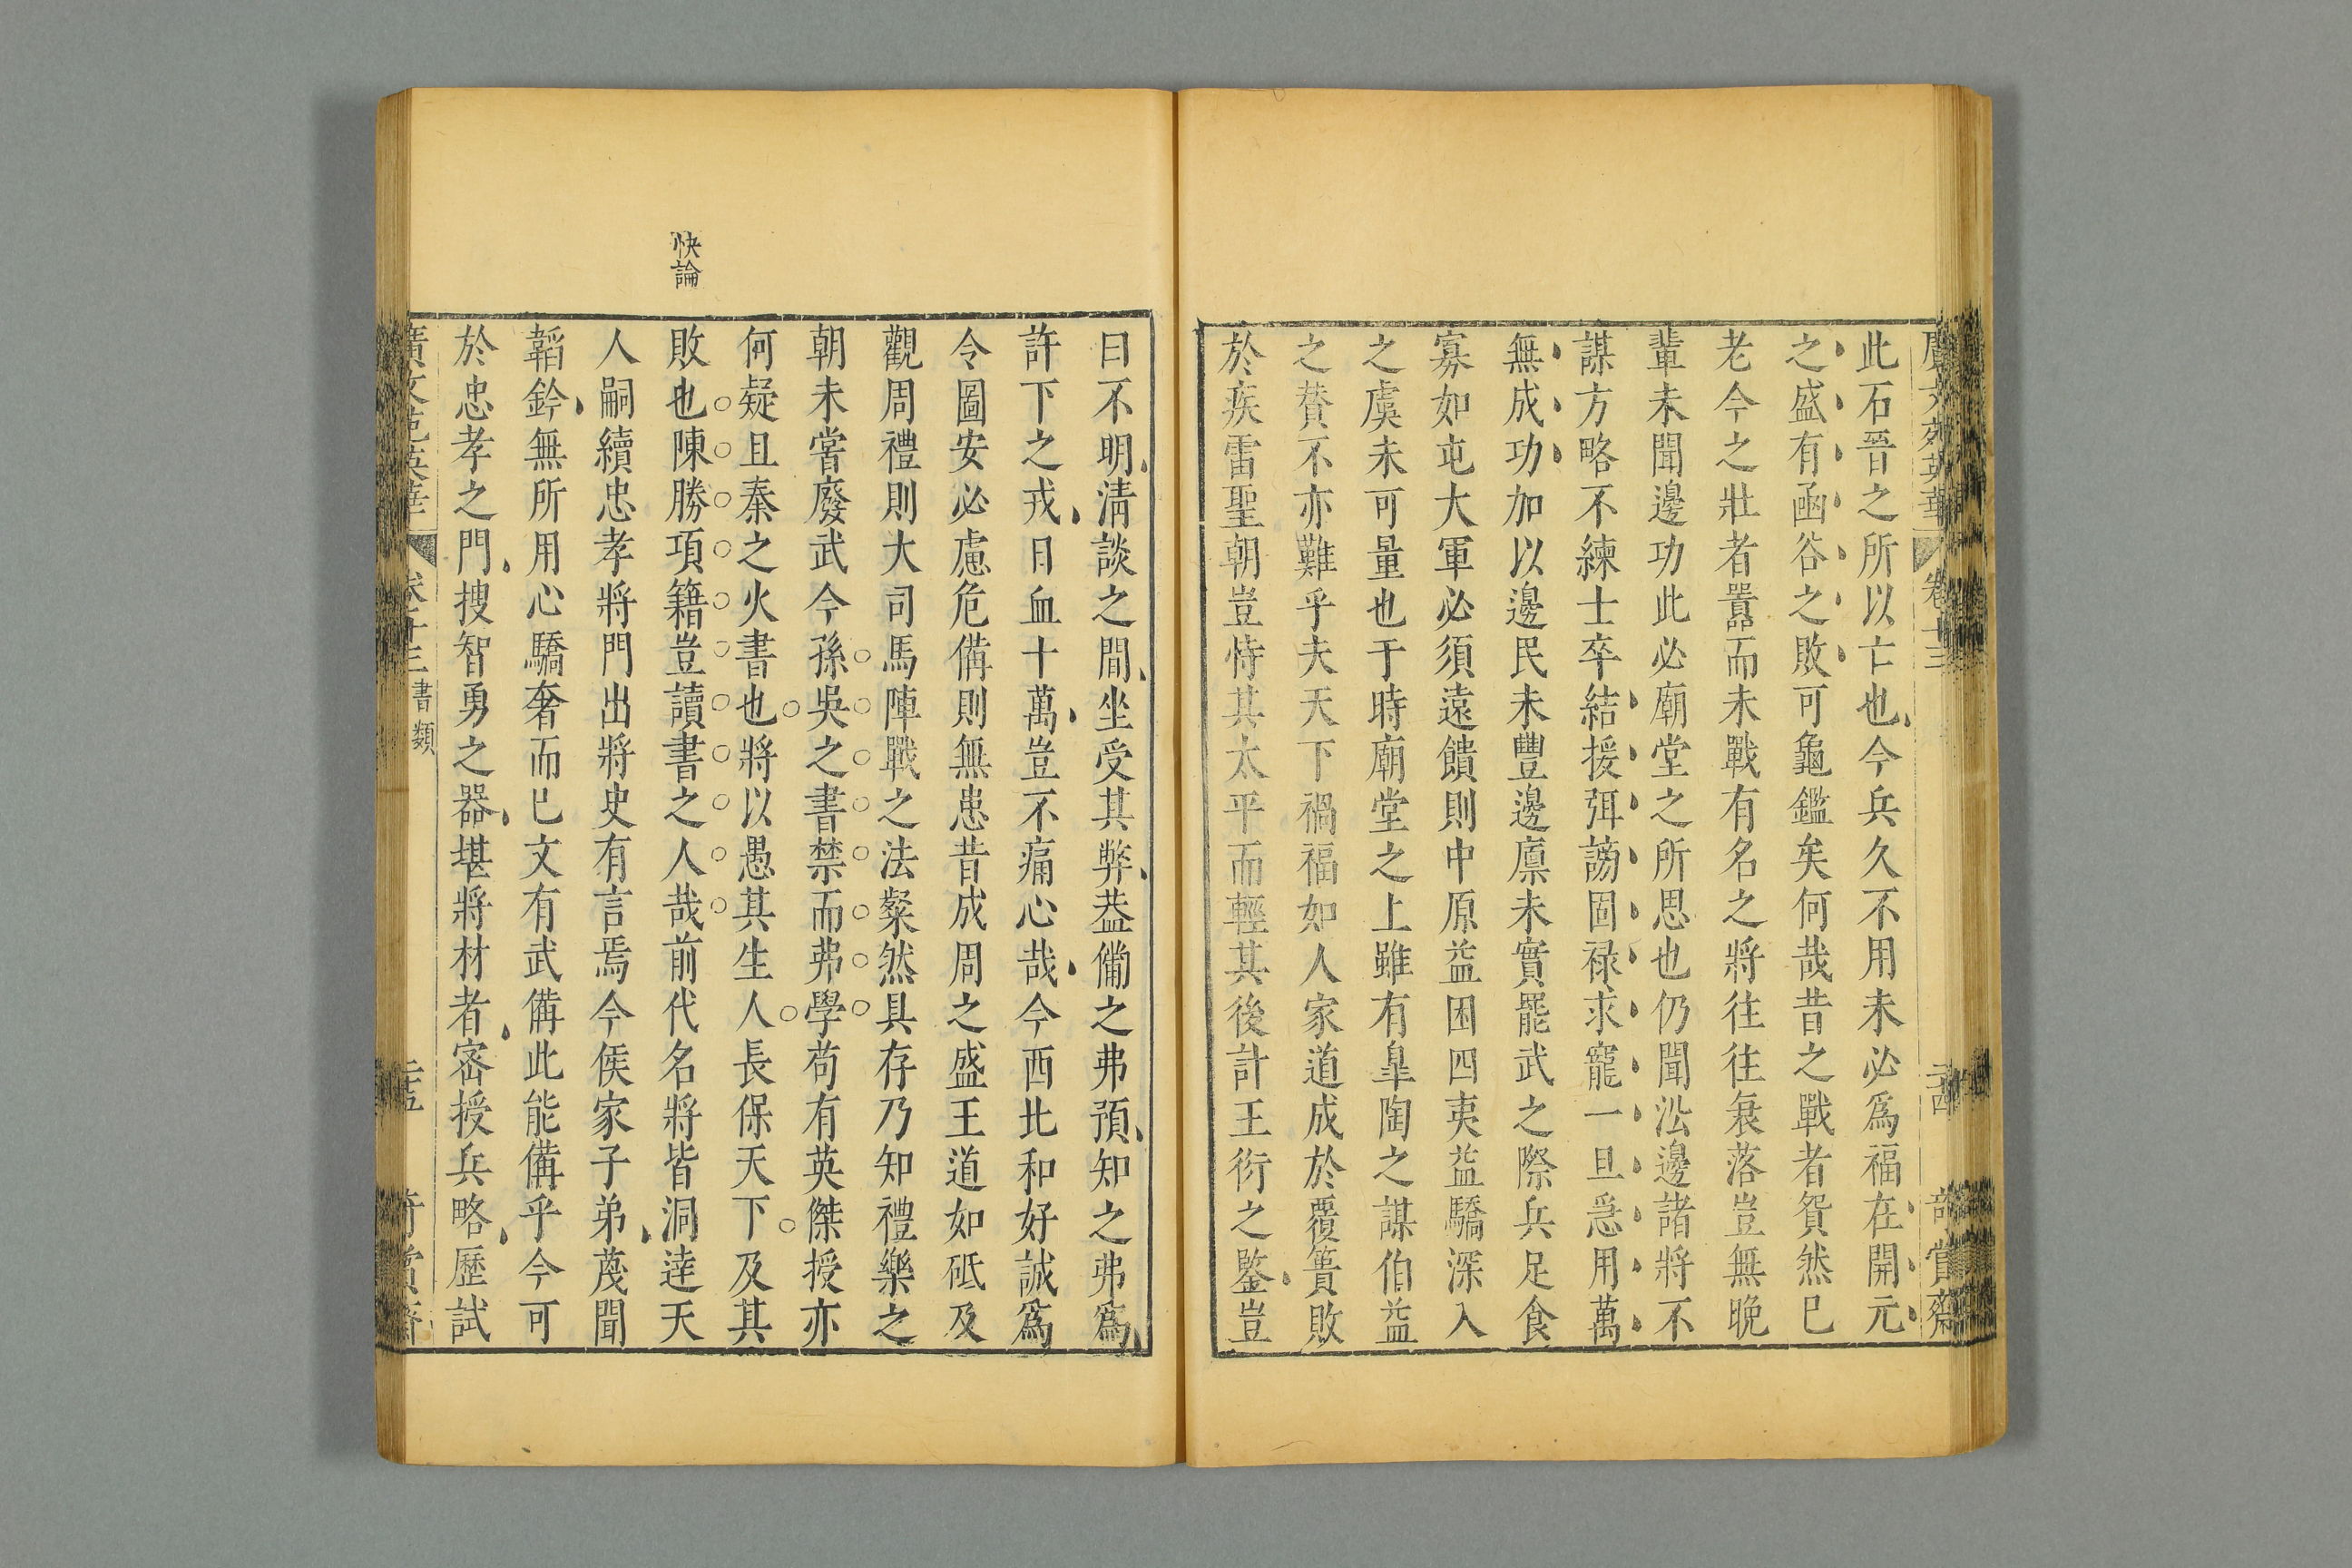 此石晉之所以亡也今兵久不用未必爲福在開元
之盛有函谷之敗可龜鑑矣何哉昔之戰者貿然已
老今之壯者囂而未戰有名之將往往衰落豈無晚
輩未聞邊功此必廟堂之所思也仍聞㳂邊諸將不
謀方略不練士卒結援弭謗固祿求寵一旦急用萬
無成功加以邊民未豐邊廩未實罷武之際兵足食
寡如屯大軍必須遠饋則中原益困四夷益驕深入
之虞未可量也于時廟堂之上雖有臯陶之謀伯益
之賛不亦難乎夫天下禍福如人家道成於覆簣敗
於疾雷聖朝豈恃其太平而輕其後計王衍之鍳豈
曰不明淸談之間坐受其弊葢備之弗預知之弗爲
許下之戎日血十萬豈不痛心哉今西北和好誠爲
令圖安必慮危備則無患昔成周之盛王道如砥及
觀周禮則大司馬陣戰之法粲然具存乃知禮樂之
朝未嘗廢武今孫吳之書禁而弗學茍有英傑授亦
何疑且秦之火書也將以愚其生人長保天下及其
快論
敗也陳勝項籍豈讀書之人哉前代名將皆洞達天
人嗣續忠孝將門出將史有言焉今侯家子弟蔑聞
韜鈐無所用心驕奢而已文有武備此能備乎今可
於忠孝之門搜智勇之器堪將材者密授兵略歷試
廣文苑英華 卷十三 書類 二十五 奇賞齋